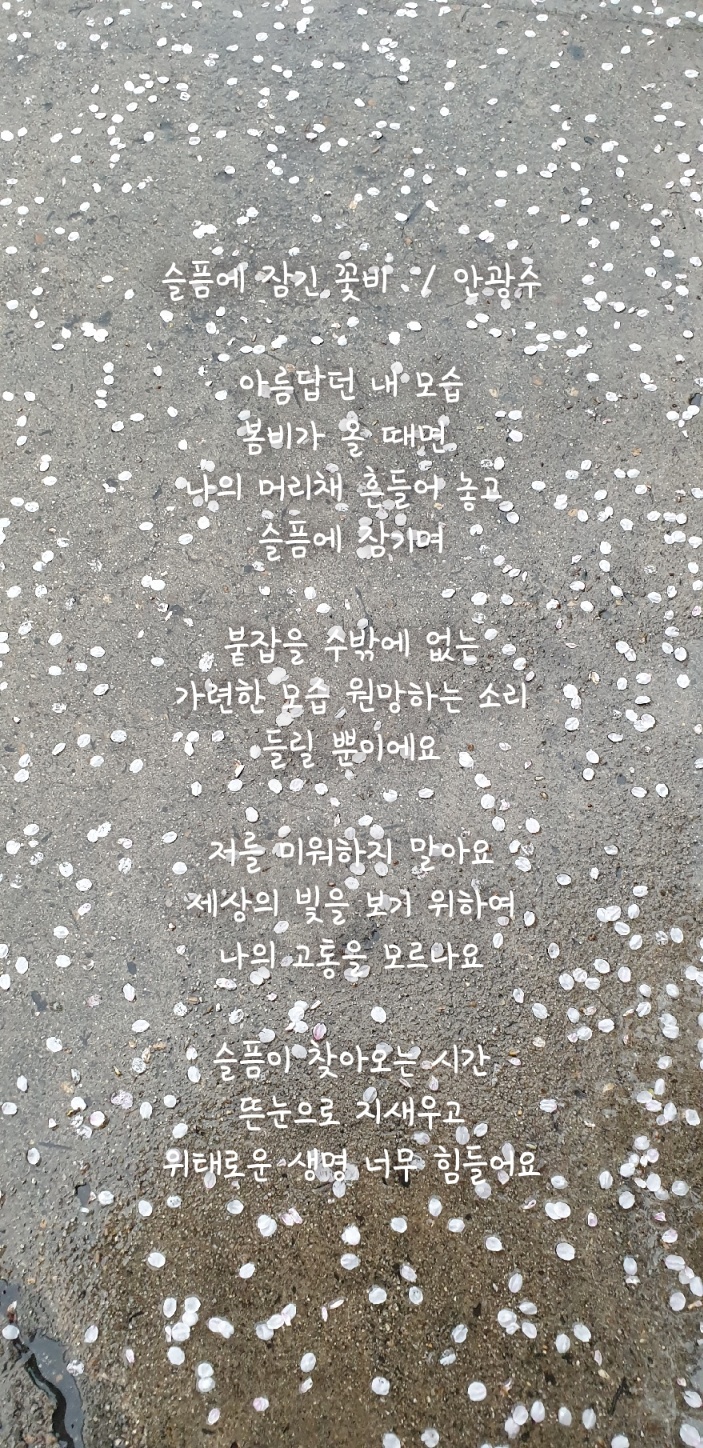 슬픔에 잠긴 꽃비 . / 안광수
아름답던 내 모습
봄비가 올 때면
나의 머리채 흔들어 놓고
슬픔에 잠기며
붙잡을 수밖에 없는
가련한 모습 원망하는 소리
들릴 뿐이에요
저를 미워하지 말아요
세상의 빛을 보기 위하여
나의 고통을 모르나요
슬픔이 찾아오는 시간
뜬눈으로 지새우고
위태로운 생명 너무 힘들어요